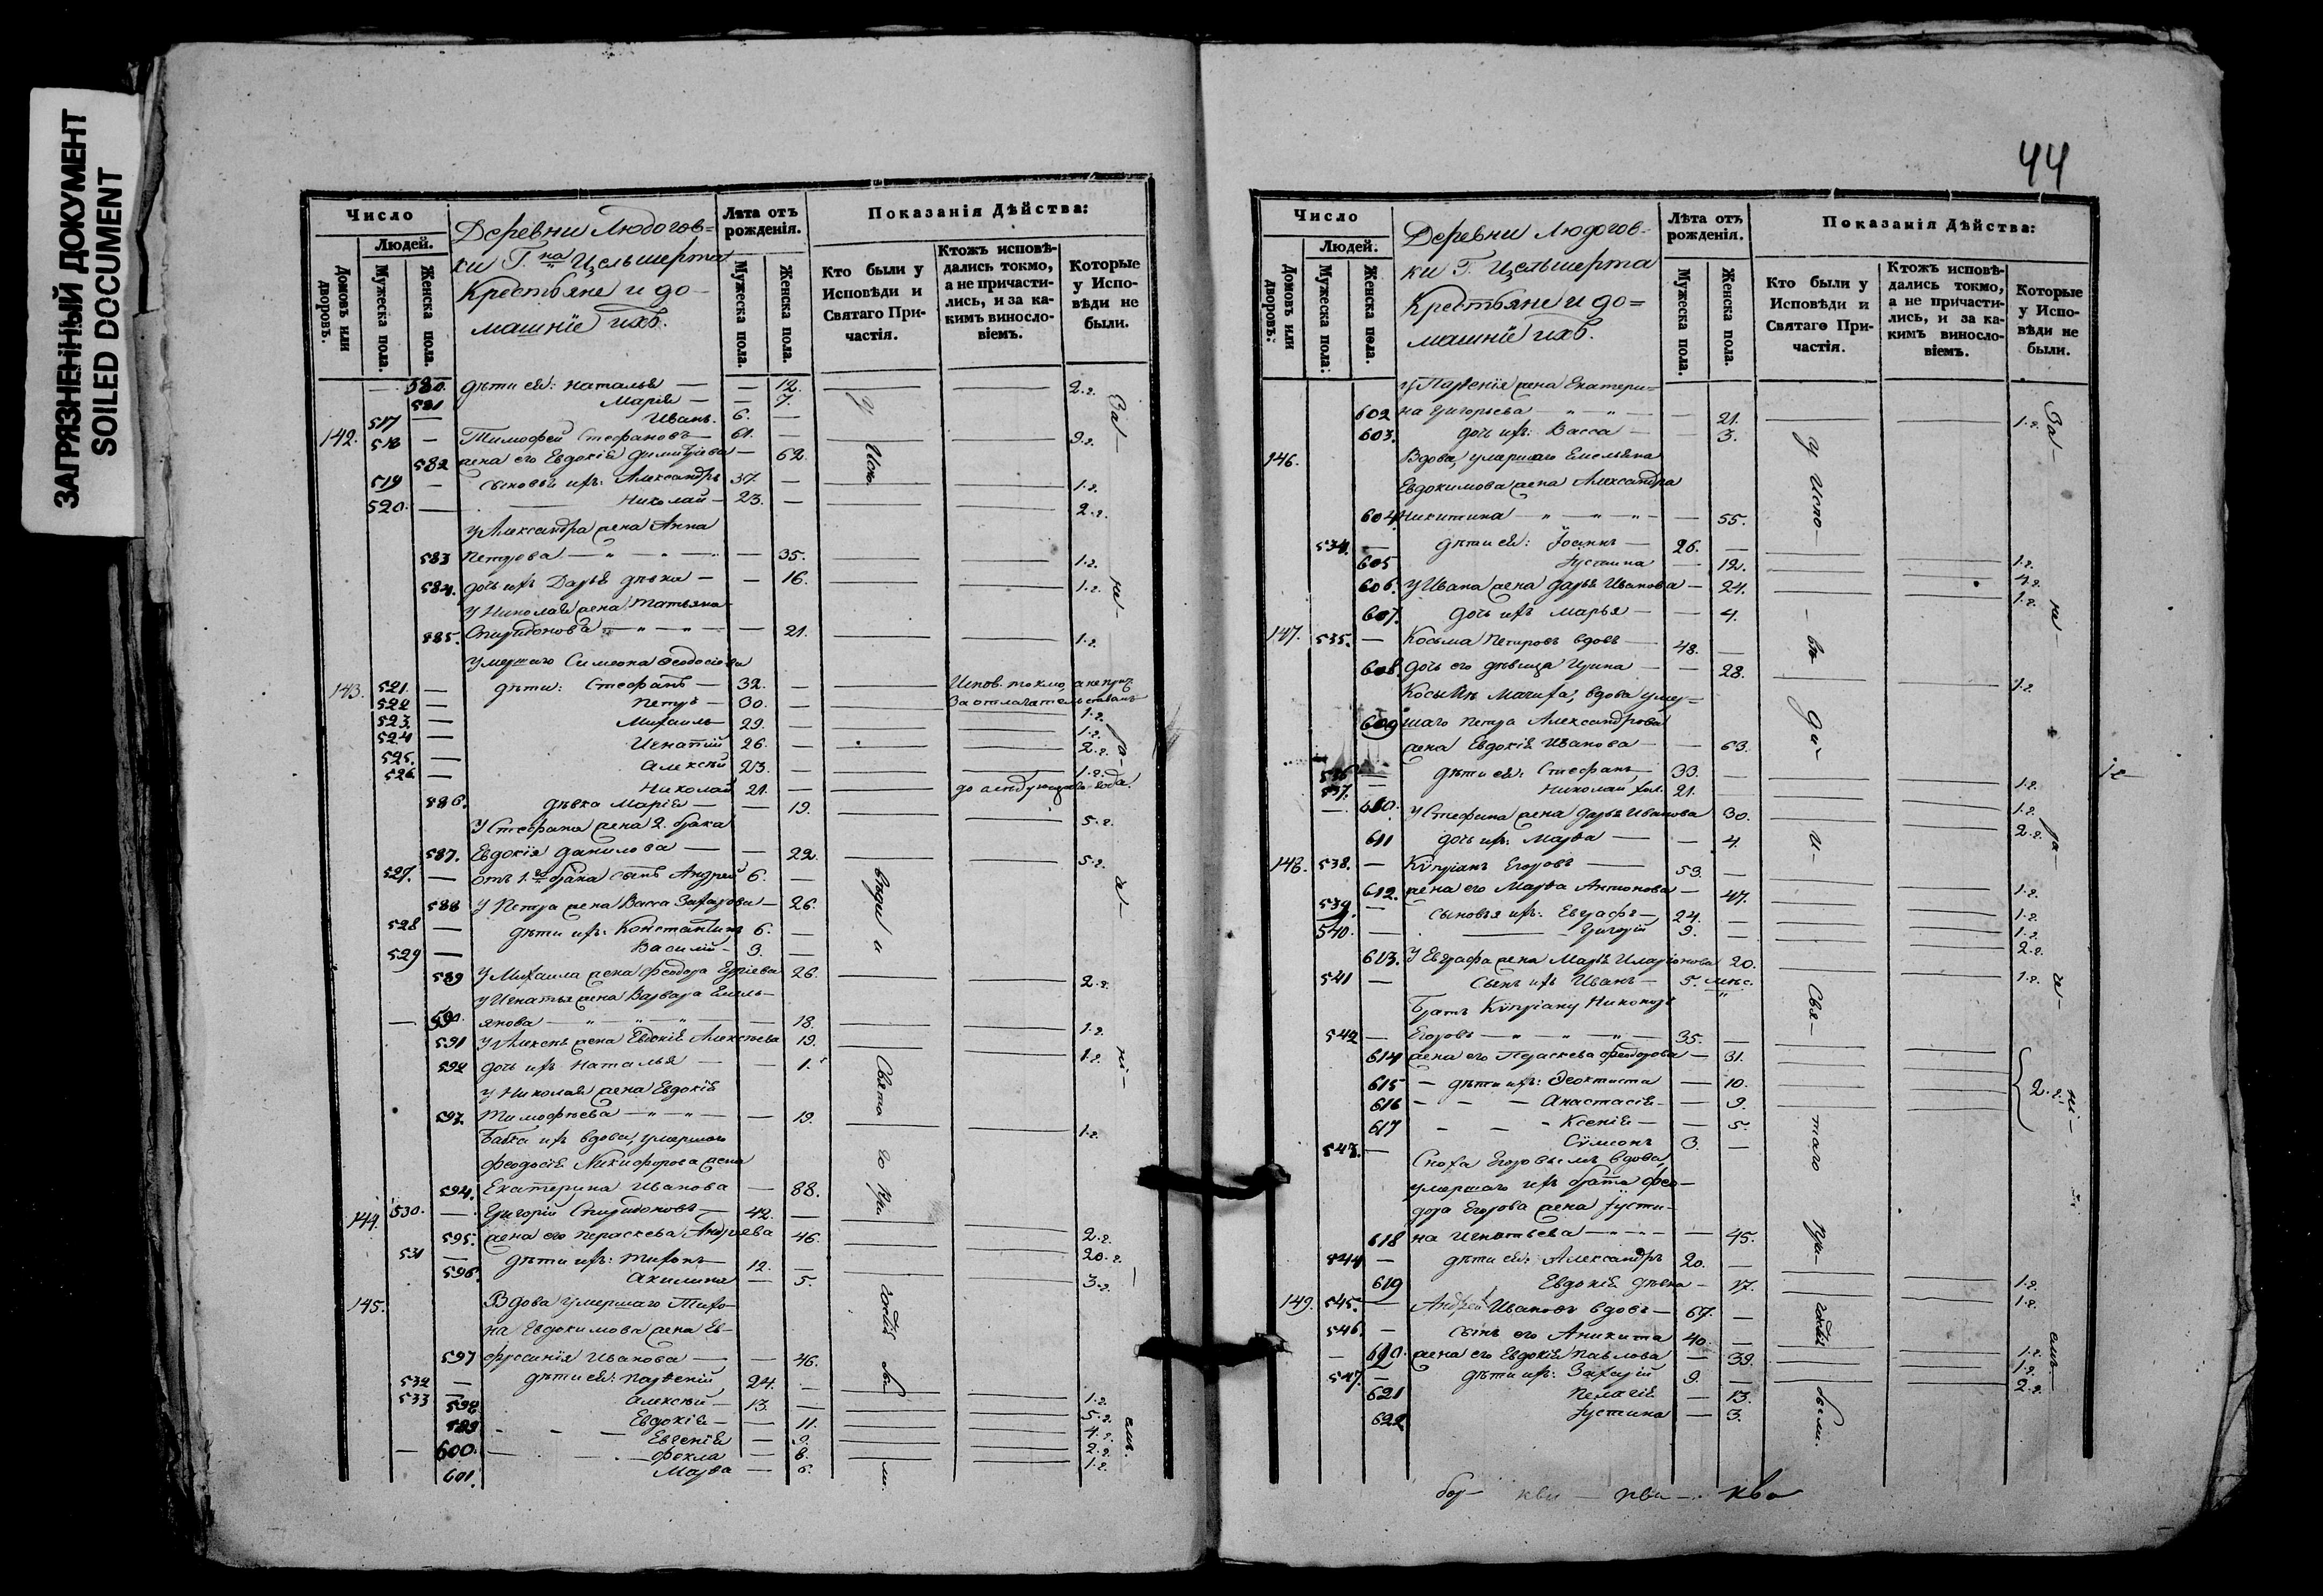 ЗАГРЯЗНЕННЫЙ ДОКУМЕНТ
SOILED DOCUMENT
Число
Людей.
Домовъ или дворовъ.
Мужеска пола.
Женска пола.
Деревни Людогов=
ки Г. на Цельшерта
Крестьяне и до-
машніе ихъ.
Лѣта отъ рожденія.
Мужеска пола.
Женска пола.
Показанія Дѣйства:
Кто были у Исповѣди и Святаго При-частія.
Ктожъ исповѣ-дались токмо, а не причасти-лись, и за ка-кимъ винословіемъ.
Которые у Испо-вѣди не были.
— 580. дѣти ея: Наталья — — 12. 2.
581 Марія — — 7.
517 — Иванъ. 6. —
142. 518 — Тимофей Стефановъ — 61. — 2.
582 жена его Евдокія Димитріева — 62.
519 — сыновья ихъ: Александръ 37. — 1.
520. — Николай — 23. — 2.
у Александра жена Анна
583 Петрова — — 35. 1.
584. дочь ихъ Дарья дѣвка — — 16. 1.
у Николая жена Татьяна
585. Спиридонова — — 21. 1.
умершаго Симеона Феодосіева
143. 521. — дѣти: Стефанъ — 32. — Испов. токмо, а не прич.
522 — Петръ — 30. —
523. — Михаилъ — 29. 1.
524 — Игнатій 26. — 2.
525. — Алексѣй 23. — 1.
526 — Николай 21. — до слѣдующаго года.
586. дѣвка Марія — — 19. 5.
У Стефана жена 2. брака
587. Евдокія Данилова — — 22. 5.
527. — отъ 1. брака сынъ Андрей 6. —
588 У Петра жена Васса Захарова — 26.
528 — дѣти ихъ: Константинъ 6. —
529 — Василій — 3. —
589 У Михаила жена Феодора Юріева 26. 2.
у Игнатья жена Варвара Емель-
— 590. янова — — 18. 1.
591 У Алексѣя жена Евдокія Алексѣева 19. 1.
592 дочь ихъ Наталья — — 1.
у Николая жена Евдокія
593. Тимофѣева — — 19. 1.
Бабка ихъ вдова, умершаго
Феодосія Никифорова жена
594. Екатерина Иванова — 88.
144. 530. — Григорій Спиридоновъ — 42. — 2.
595. жена его Параскева Андреева 46. 20.
531 — дѣти ихъ: Тихонъ — 12. — 3.
596. Акилина — 5.
145. Вдова умершаго Тихо-
на Евдокимова жена Ев-
597 фросинія Иванова — — 46.
532 — дѣти ея: Парѳеній 24. — 1.
533 — Алексѣй — 13. — 5.
598 Евдокія — — 11. 4.
599 Евгенія — 9. 2.
— 600. Фекла — 8. 1.
601. Марѳа — 6.
у Испо- вѣди и Свята го При частія бы ли.
За- на- ра- жде- ні- емъ.
44
Число
Людей.
Домовъ или дворовъ:
Мужеска пола:
Женска пола.
Деревни Людогов-
ки Г. Цельшерта
Крестьяне и до=
машніе ихъ.
Лѣта отъ рожденія.
Мужеска пола.
Женска пола.
Показанія Дѣйства:
Кто были у Исповѣди и Святаго При-частія.
Ктожъ исповѣ-дались токмо, а не причасти-лись, и за ка-кимъ винословіемъ.
Которые у Испо-вѣди не были.
у Парѳенія жена Екатери=
602 на Григорьева — 21. 1.
603. дочь ихъ: Васса — 3.
146. Вдова, умершаго Емельяна
Евдокимова жена Александра
604 Никитина — — 55.
534. — дѣти ея: Іоаннъ — 26. —
605 Іустина — 12. 1.
606. у Ивана жена Дарья Иванова — 24. 1.
607. дочь ихъ Марья — — 4.
147. 535. — Косьма Петровъ вдовъ — 48. —
608. дочь его дѣвица Ирина — — 28. 1.
Косьмы мачиха, вдова умер=
609 шаго Петра Александрова
жена Евдокія Иванова — — 63.
536 — дѣти ея: Стефанъ 33. — 1.
537. — Николай хол. 21. 1.
— 610. у Стефана жена Дарья Иванова 30. 2.
611 дочь ихъ: Марѳа — — 4.
148. 538. — Кипріанъ Егоровъ — 53. — 1.
612. жена его Марѳа Антонова — 47. 1.
539. — сыновья ихъ: Евграфъ — 24. — 1.
540. — Григорій 9. — 2.
613. У Евграфа жена Марья Иларіонова 20. 1.
541 — сынъ ихъ Иванъ — 5. мѣс.
Братъ Кипріану Никаноръ
542 — Егоровъ — — 35. —
614 жена его Параскева Феодорова — 31.
615 — дѣти ихъ: Ѳеоктиста — 10. 2.
616 — — — Анастасія — — 9.
617 — — — Ксенія — — 5.
543. — Сѵмеонъ 3. —
Сноха Егоровымъ вдова,
умершаго ихъ брата Фео-
дора Егорова жена Іусти-
618 на Игнатьева — — 45.
544 — дѣти ея: Александръ 20. — 1.
619 Евдокія дѣвка — 17. 1.
149. 545. — Андрей Ивановъ вдовъ — 67. —
546. — сынъ его Аникита 40. — 1.
— 620. жена его Евдокія Павлова — 39. 1.
547. — дѣти ихъ: Захарій 9. — 2.
621 Пелагія — 13.
622 Іустина — 3.
у Испо- вѣ- ди и Свя- таго При- частія были.